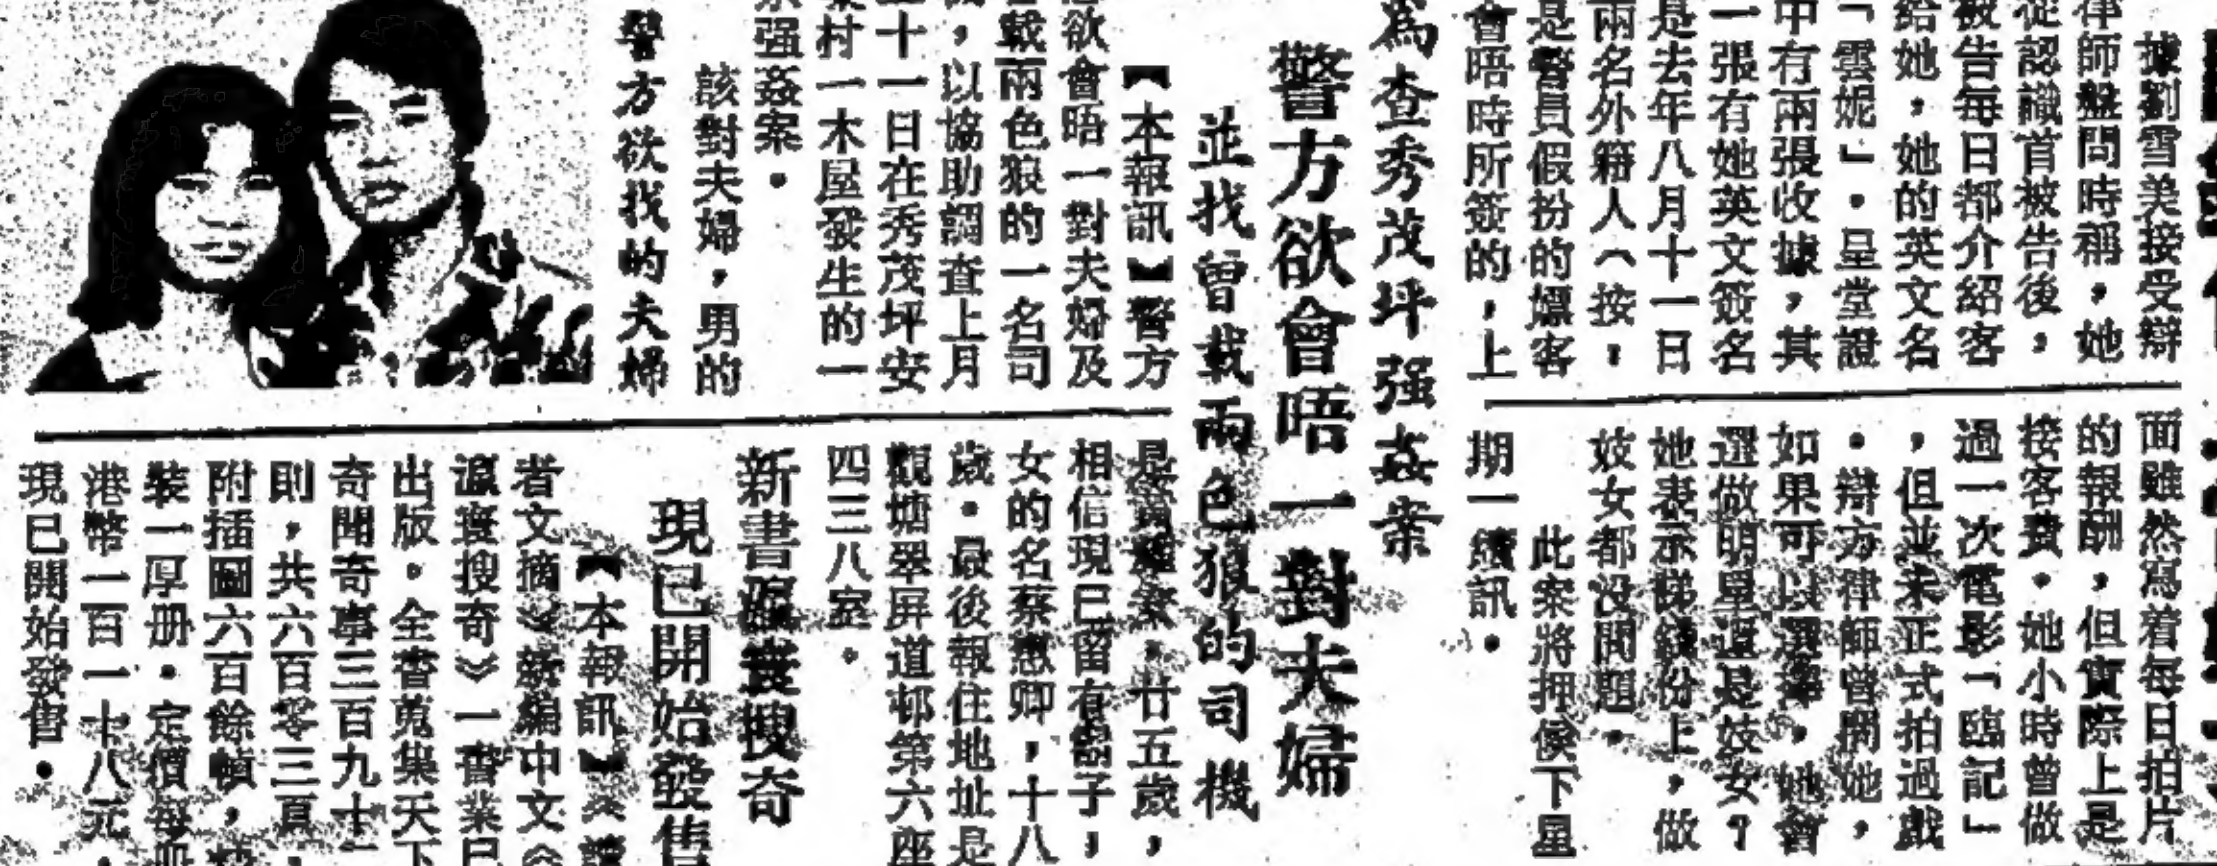 據劉雪美接受辯
律師盤問時稱，她
從認識首被告後，
被告每日都介紹客
給她，她的英文名
「雲妮」。呈堂證
中有兩張收據，其
一張有她英文簽名
是去年八月十一日
兩名外籍人（按，
是警員假扮的嫖客
會晤時所簽的，上
面雖然寫着每日拍片
的報酬，但實際上是
接客費。她小時曾做
過一次電影「臨記」
，但並未正式拍過戲
。辯方律師曾問她，
如果可以選擇，她會
選做明星還是妓女？
她表示睇錢份上，做
妓女都沒問題。
此案將押候下星
期一續訊。
為查秀茂坪强姦案
警方欲會晤一對夫婦
並找曾載兩色狼的司機
【本報訊】警方
欲會晤一對夫婦及
載兩色狼的一名司
，以協助調查上月
十一日在秀茂坪安
村一木屋發生的一
强姦案。
該對夫婦，男的
是黃，廿五歲，
相信現已留有鬍子，
女的名蔡惠卿，十八
歲。最後報住地址是
觀塘翠屏道邨第六座
四三八室。
警方欲找的夫婦
新書搜奇
現已開始發售
【本報訊】讀
者文摘》新編中文《
搜奇》一書業已
出版。全書蒐集天下
奇聞奇事三百九十
則，共六百零三頁，
附插圖六百餘幀，
裝一厚册。定價每册
港幣一百一十八元，
現已開始發售。